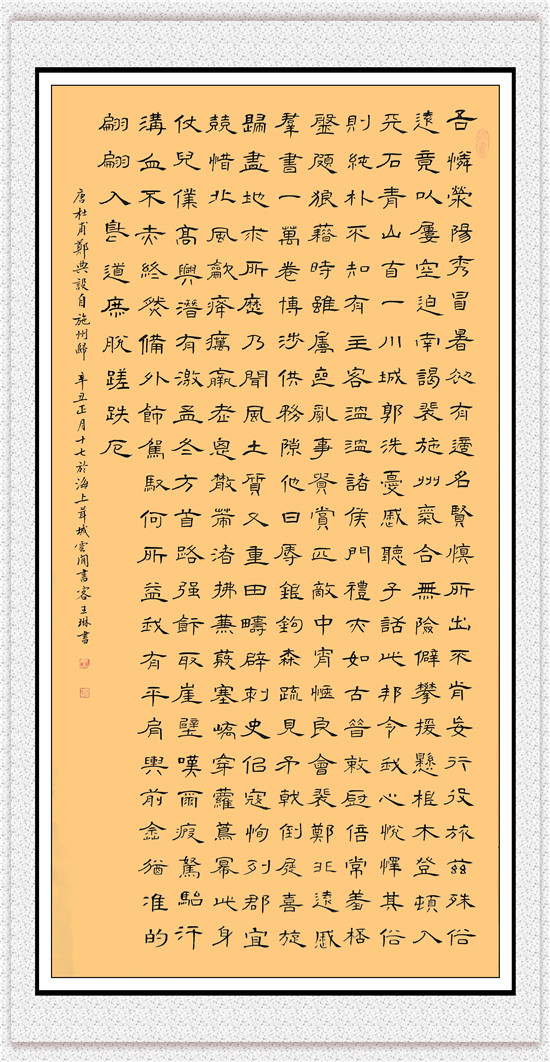 吾憐滎陽秀冒暑初有適名賢慎所出不肯妄行役旅茲殊俗
遠竟以屢空迫南謁裴施州氣合無險僻攀援懸根木登頓入
天石青山自一川城郭洗憂慼聽子話此邦令我心悅懌其俗
則純朴不知有主客溫溫諸侯門禮亦如古昔敕廚倍常羞桮
盤頗狼藉時雖屬喪亂事貴賞匹敵中宵愜良會裴鄭非遠慼
羣書一萬卷博涉供務隙他日辱銀鉤森疏見矛戟倒屣喜旋
歸畫地求所歷乃聞風土質又重田疇辟刺史佀寇恂列郡宜
競惜北風歘瘴癘羸老思散策渚拂蒹葭塞嶠穿蘿蔦冪此身
仗兒僕高興潛有激孟冬方首路强飯取崖壁嘆爾疲駑駘汗
溝血不赤終然備外飾駕馭何所益我有平肩輿前途猶准的
翩翩入鳥道庶脫蹉跌厄
唐杜甫鄭典設自施州歸 辛丑正月十七於海上茸城雲間書客王琳書